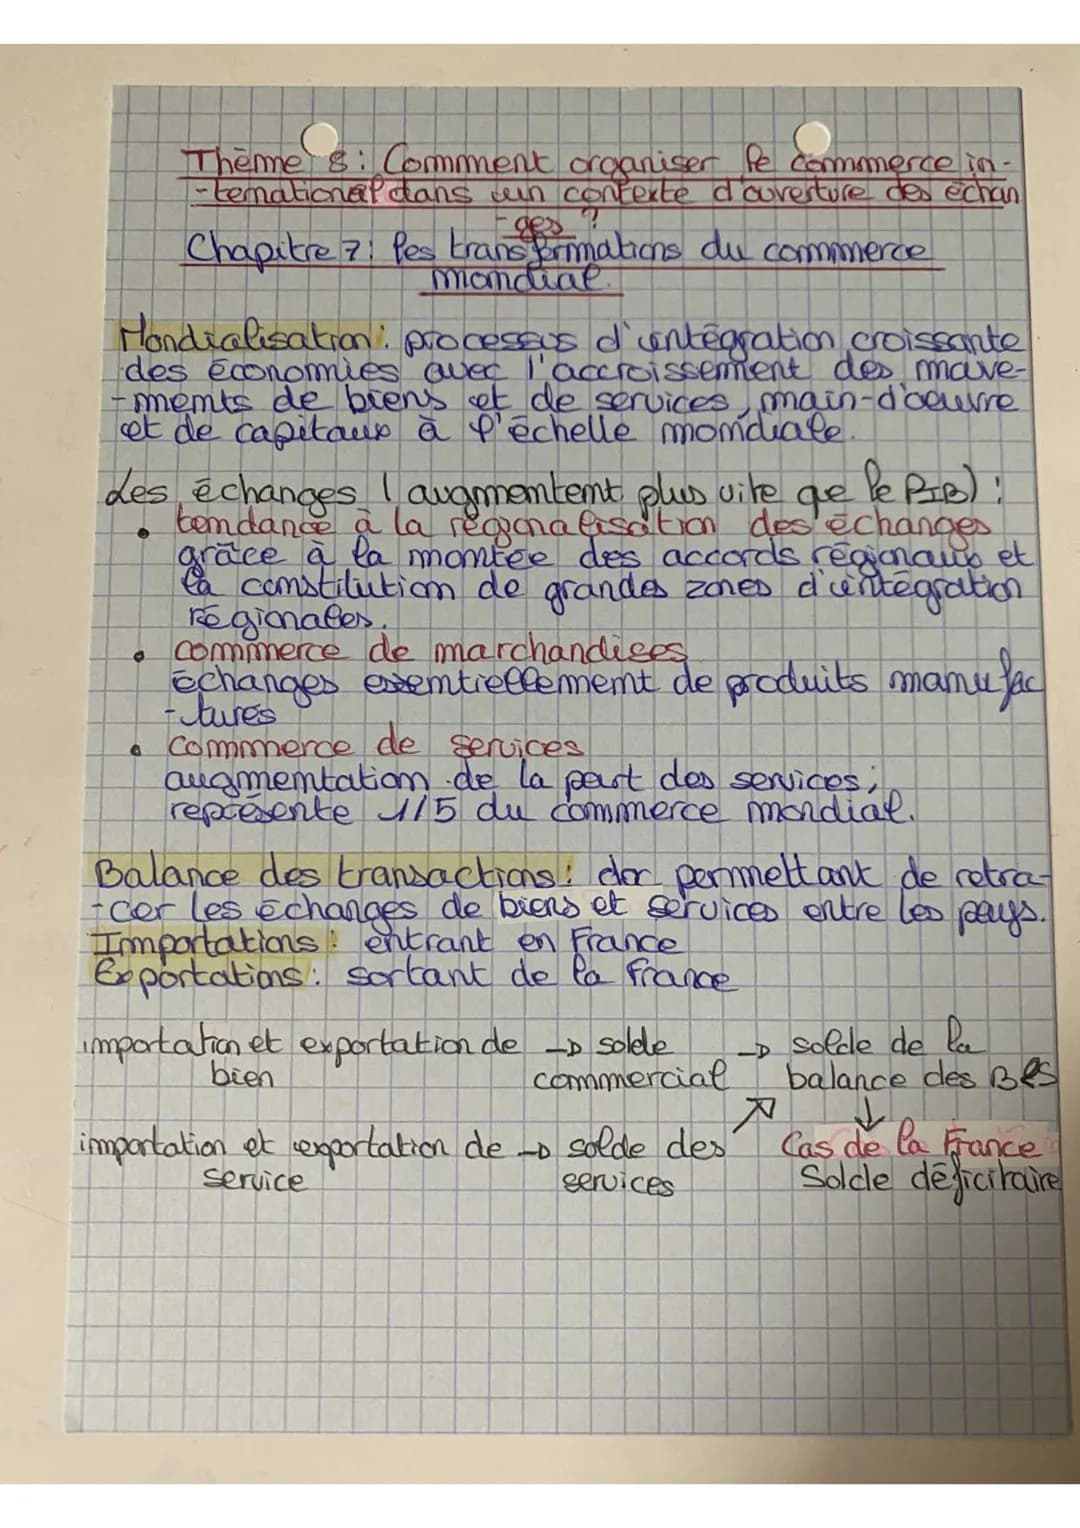 Thème 8 : Comment organiser le commerce in-
-ternational dans un contexte d'ouverture des échan
-ges ?
Chapitre 7 : les transformations du commerce
mondial.
Mondialisation : processus d'intégration croissante
des économies avec l'accroissement des mouve-
-ments de biens et de services, main-d'oeuvre
et de capitaux à l'échelle mondiale.
Les échanges ( augmentent plus vite que le PIB) :
• tendance à la régionalisation des échanges
grâce à la montée des accords régionaux et
la constitution de grandes zones d'intégration
régionales.
• commerce de marchandises
échanges essentiellement de produits manufac
-turés
• commerce de services
augmentation de la part des services ;
représente 1/5 du commerce mondial.
Balance des transactions : doc permettant de retra-
-cer les échanges de biens et services entre les pays.
Importations : entrant en France
Exportations : sortant de la France
importation et exportation de → solde → solde de la
bien commercial balance des BeS
↗ ↓
importation et exportation de → solde des Cas de la France
service services Solde déficitaire